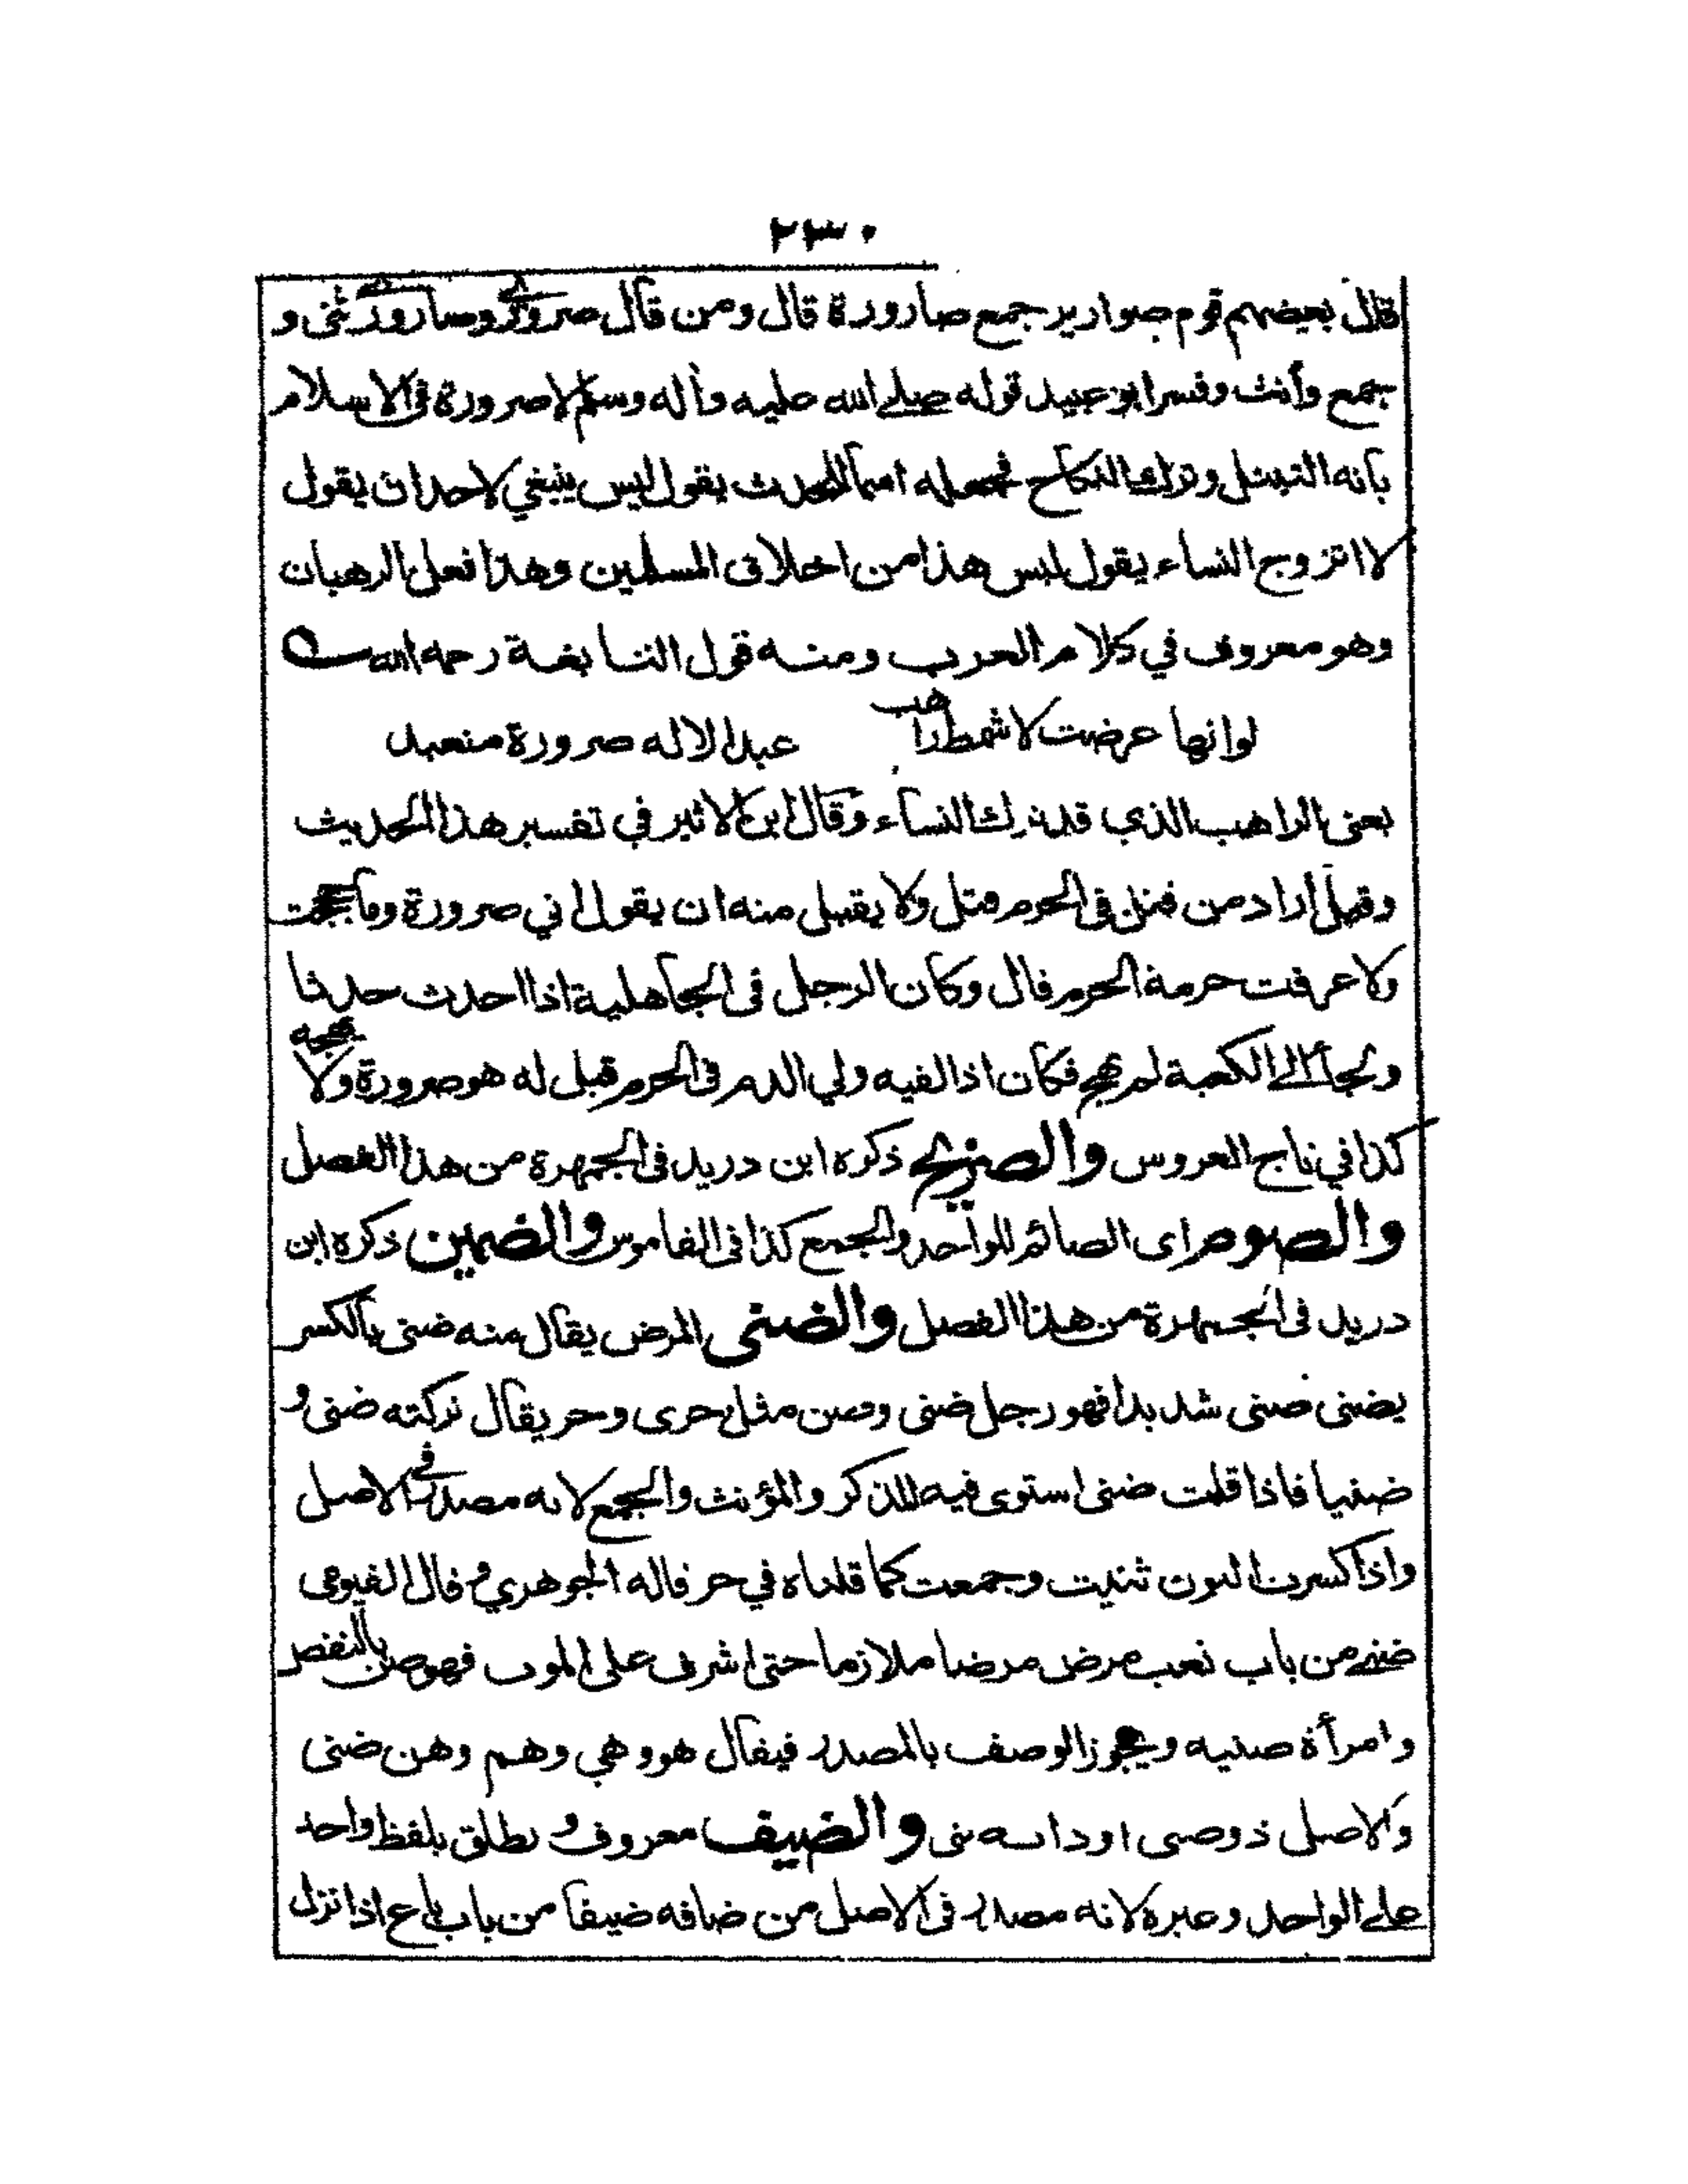 ٢٣٠
قال بعضهم قوم صوارير جمع صارورة قال ومن قال صروري وصاروري ثنى و
جمع وأنث وفسر ابو عبيد قوله صلى الله عليه وأله وسلم لا صرورة فى الاسلام
بانه التبتل وترك النكاح فجعله اسما للحدث يقول ليس ينبغي لاحد ان يقول
لا اتزوج النساء يقول ليس هذا من اخلاق المسلمين وهذا فعل الرهبان
وهو معروف في كلام العرب ومنه قول النابغة رحمه الله
لو انها عرضت لاشمط راهب عبد الاله صرورة متعبد
يعنى الراهب الذي قد ترك النساء وقال ابن الاثير في تفسير هذا الحديث
وقيل اراد من قتل فى الحرم قتل ولا يقبل منه ان يقول اني صرورة وما حججت
ولا عرفت حرمة الحرم قال وكان الرجل فى الجاهلية اذا احدث حدثا
ولجأ الى الكعبة لم يهج فكان اذا لقيه ولي الدم فى الحرم قيل له هو صرورة ولا تهجه
كذا في تاج العروس والصريح ذكره ابن دريد فى الجمهرة من هذا الفصل
والصوم اى الصائم للواحد والجمع كذا فى القاموس والضمين ذكره ابن
دريد فى الجمهرة من هذا الفصل والضنى المرض يقال منه ضنى بالكسر
يضنى ضنى شديدا فهو رجل ضنى وضن مثل حرى وحر يقال تركته ضنى و
ضنيا فاذا قلت ضنى استوى فيه المذكر والمؤنث والجمع لانه مصدر فى الاصل
واذا كسرت النون ثنيت وجمعت كما قلناه في حر قاله الجوهري وقال الفيومى
ضنى من باب تعب مرض مرضا ملازما حتى اشرف على الموت فهو ضن بالنقص
وامرأة ضنيه ويجوز الوصف بالمصدر فيقال هو وهي وهم وهن ضنى
والاصل ذو ضنى او ذات ضنى والضيف معروف ويطلق بلفظ واحد
على الواحد وغيره لانه مصدر فى الاصل من ضافه ضيفا من باب باع اذا نزل